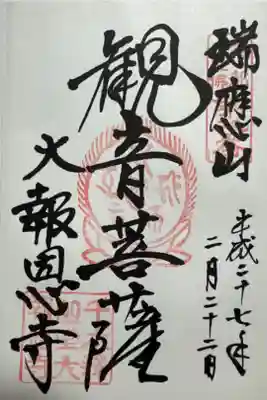 瑞應山
平成二十七年
二月二十二日
観音菩薩
大報恩寺